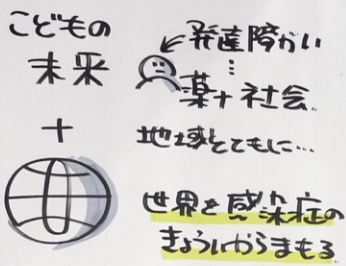 こどもの
未来
+
発達障がい
⋮
薬+社会
地域とともに…
世界を感染症の
きょういからまもる